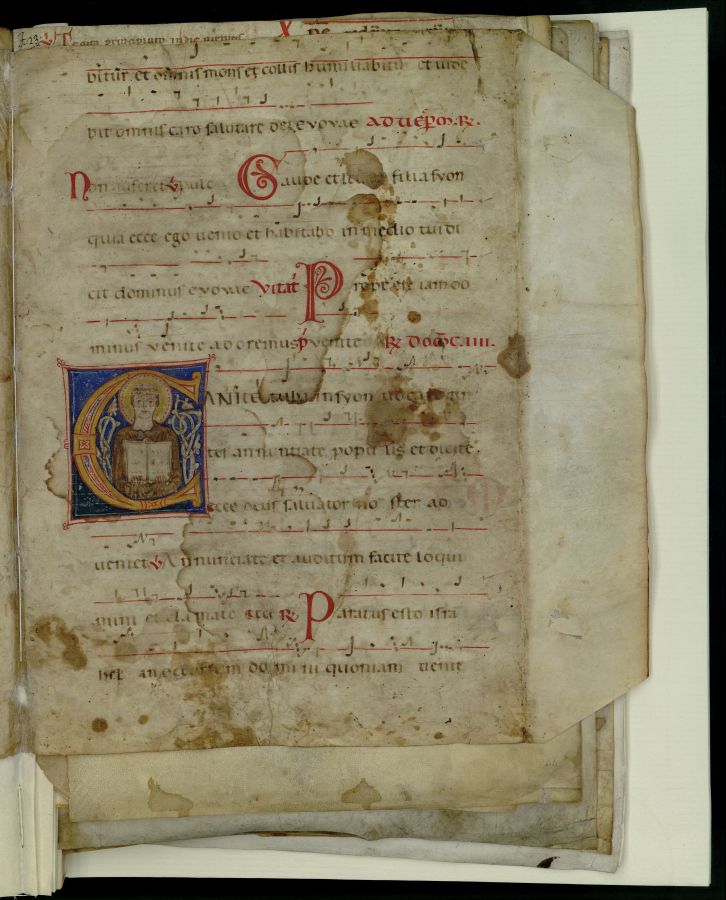 bitur et omnis mons et collis humiliabitur et vide
bit omnis caro salutare dei evovae ad vep̄m. R.
Non auferet V pulc Gaude et leta filia syon
quia ecce ego venio et habitabo in medio tui di
cit dominus evovae vitat̄ Prope est iam do
minus venite adoremus p̄ venite R dom̄ca.iiii.
CANITE tuba in syon vocate gen
tes annuntiate populis et dicite
ecce deus salvator noster ad
veniet V Annunciate et auditum facite loqui
mini et clamate ecce R Paratus esto isra
hel in occursum domini quoniam venit